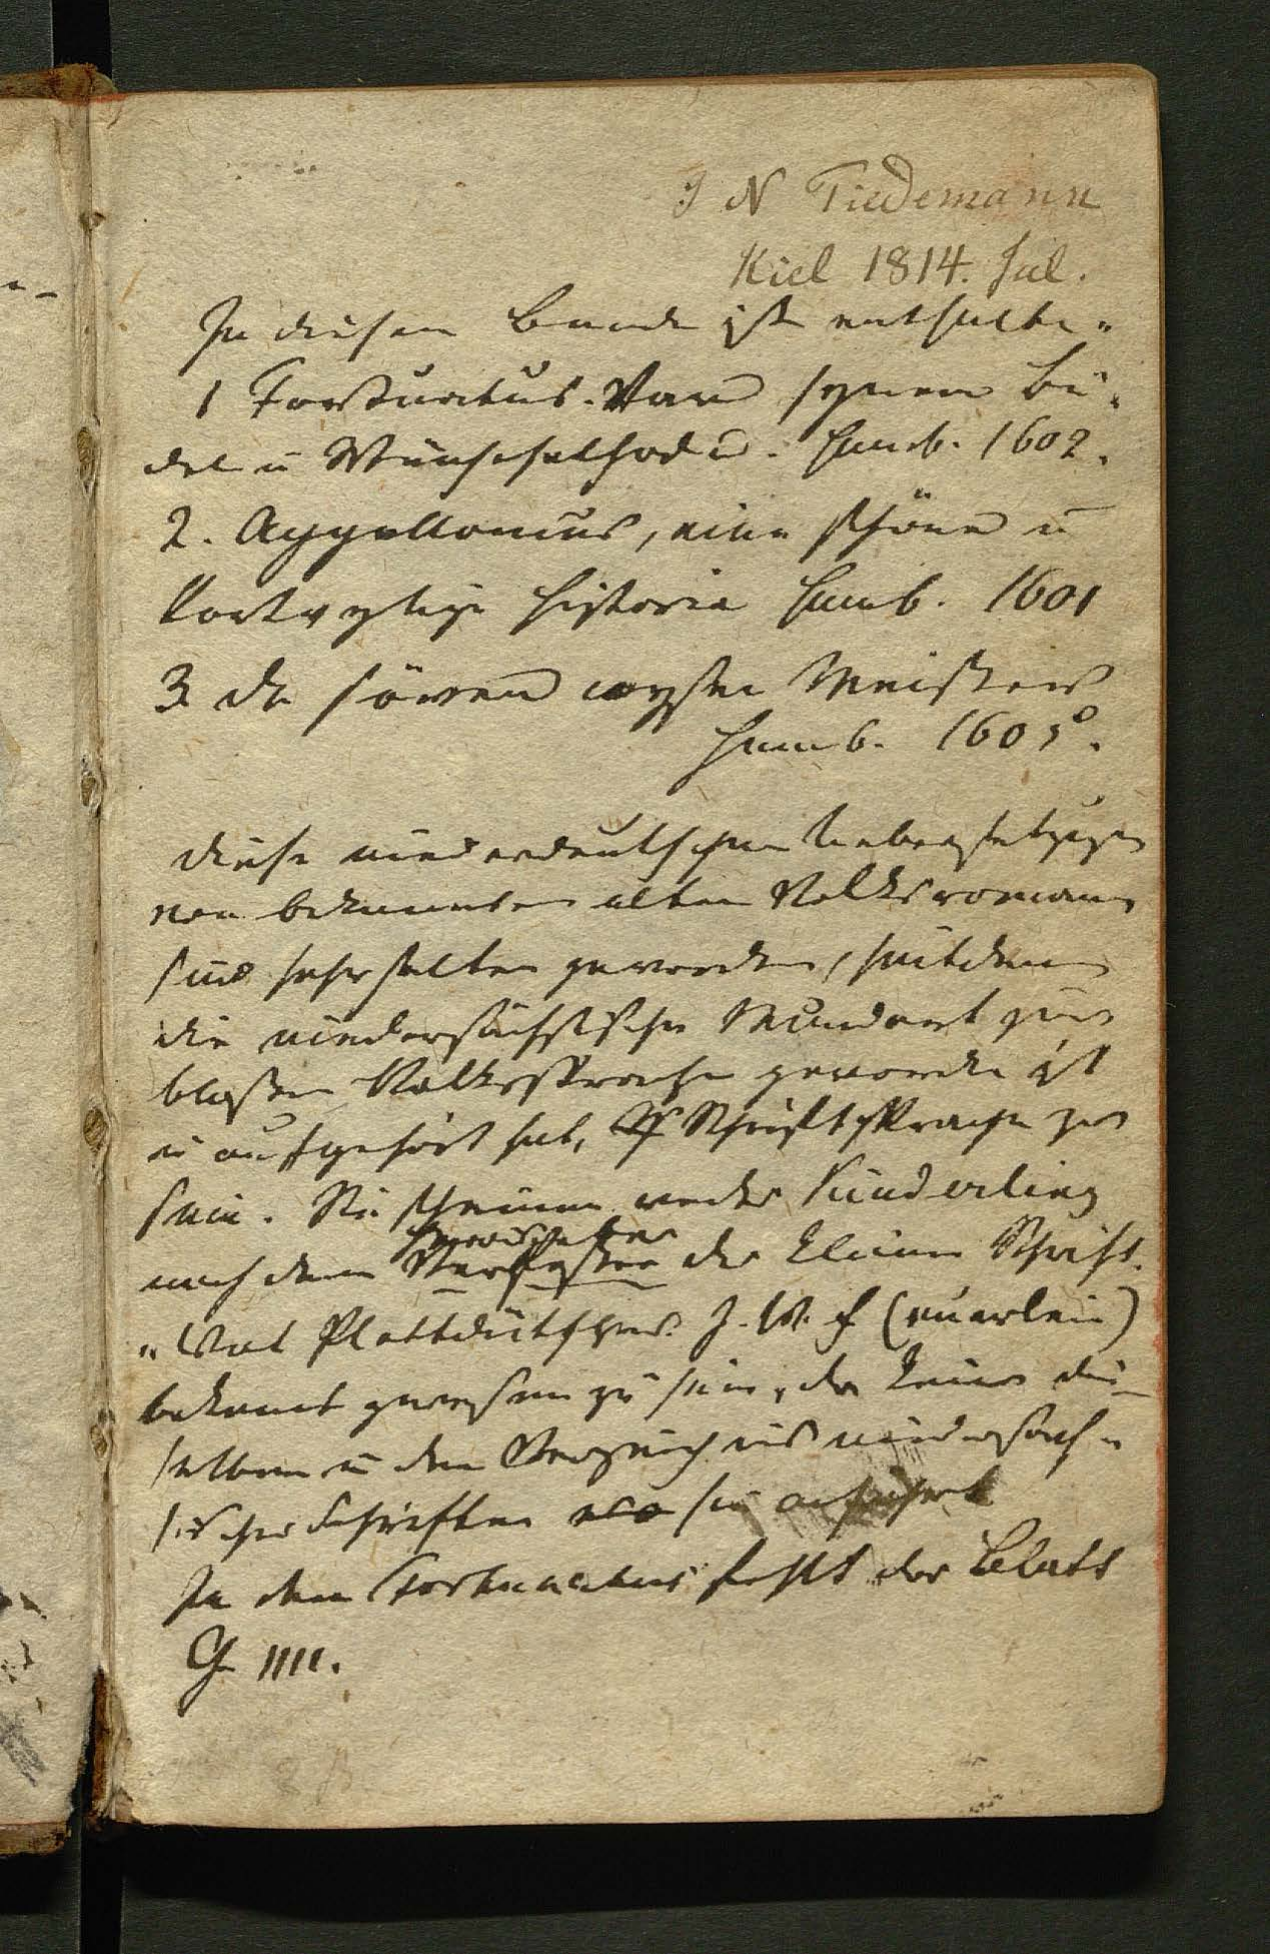 J N Tiedemann
Kiel 1814. Jul.
In diesem Bande ist enthalten
1 Fortunatus. Van synem Bü-
del u Wünschelhode. Hamb. 1602.
2. Appollonius, eine schöne u
Hamb. 1601 Historia
3. De söven wysen Meisters
Hamb. 1605.
Diese niederdeutschen Uebersetzungen
von bekannten alten Volksromanen
sind sehr selten geworden, seitdem
die niedersächsische Mundart zur
bloßen Volkssprache geworden ist
u aufgehört hat, Schriftsprache zu
sein. Sie scheinen weder Kinderling
noch dem Verfasser der kleinen Schrift.
"Wat Plattdütsches J. W. F (euerlein)
bekannt gewesen zu sein, da keiner die-
selben in dem Verzeichnis niedersäch-
sischer Schriften anführt
In dem Fortunatus fehlt das Blatt
G IIII.